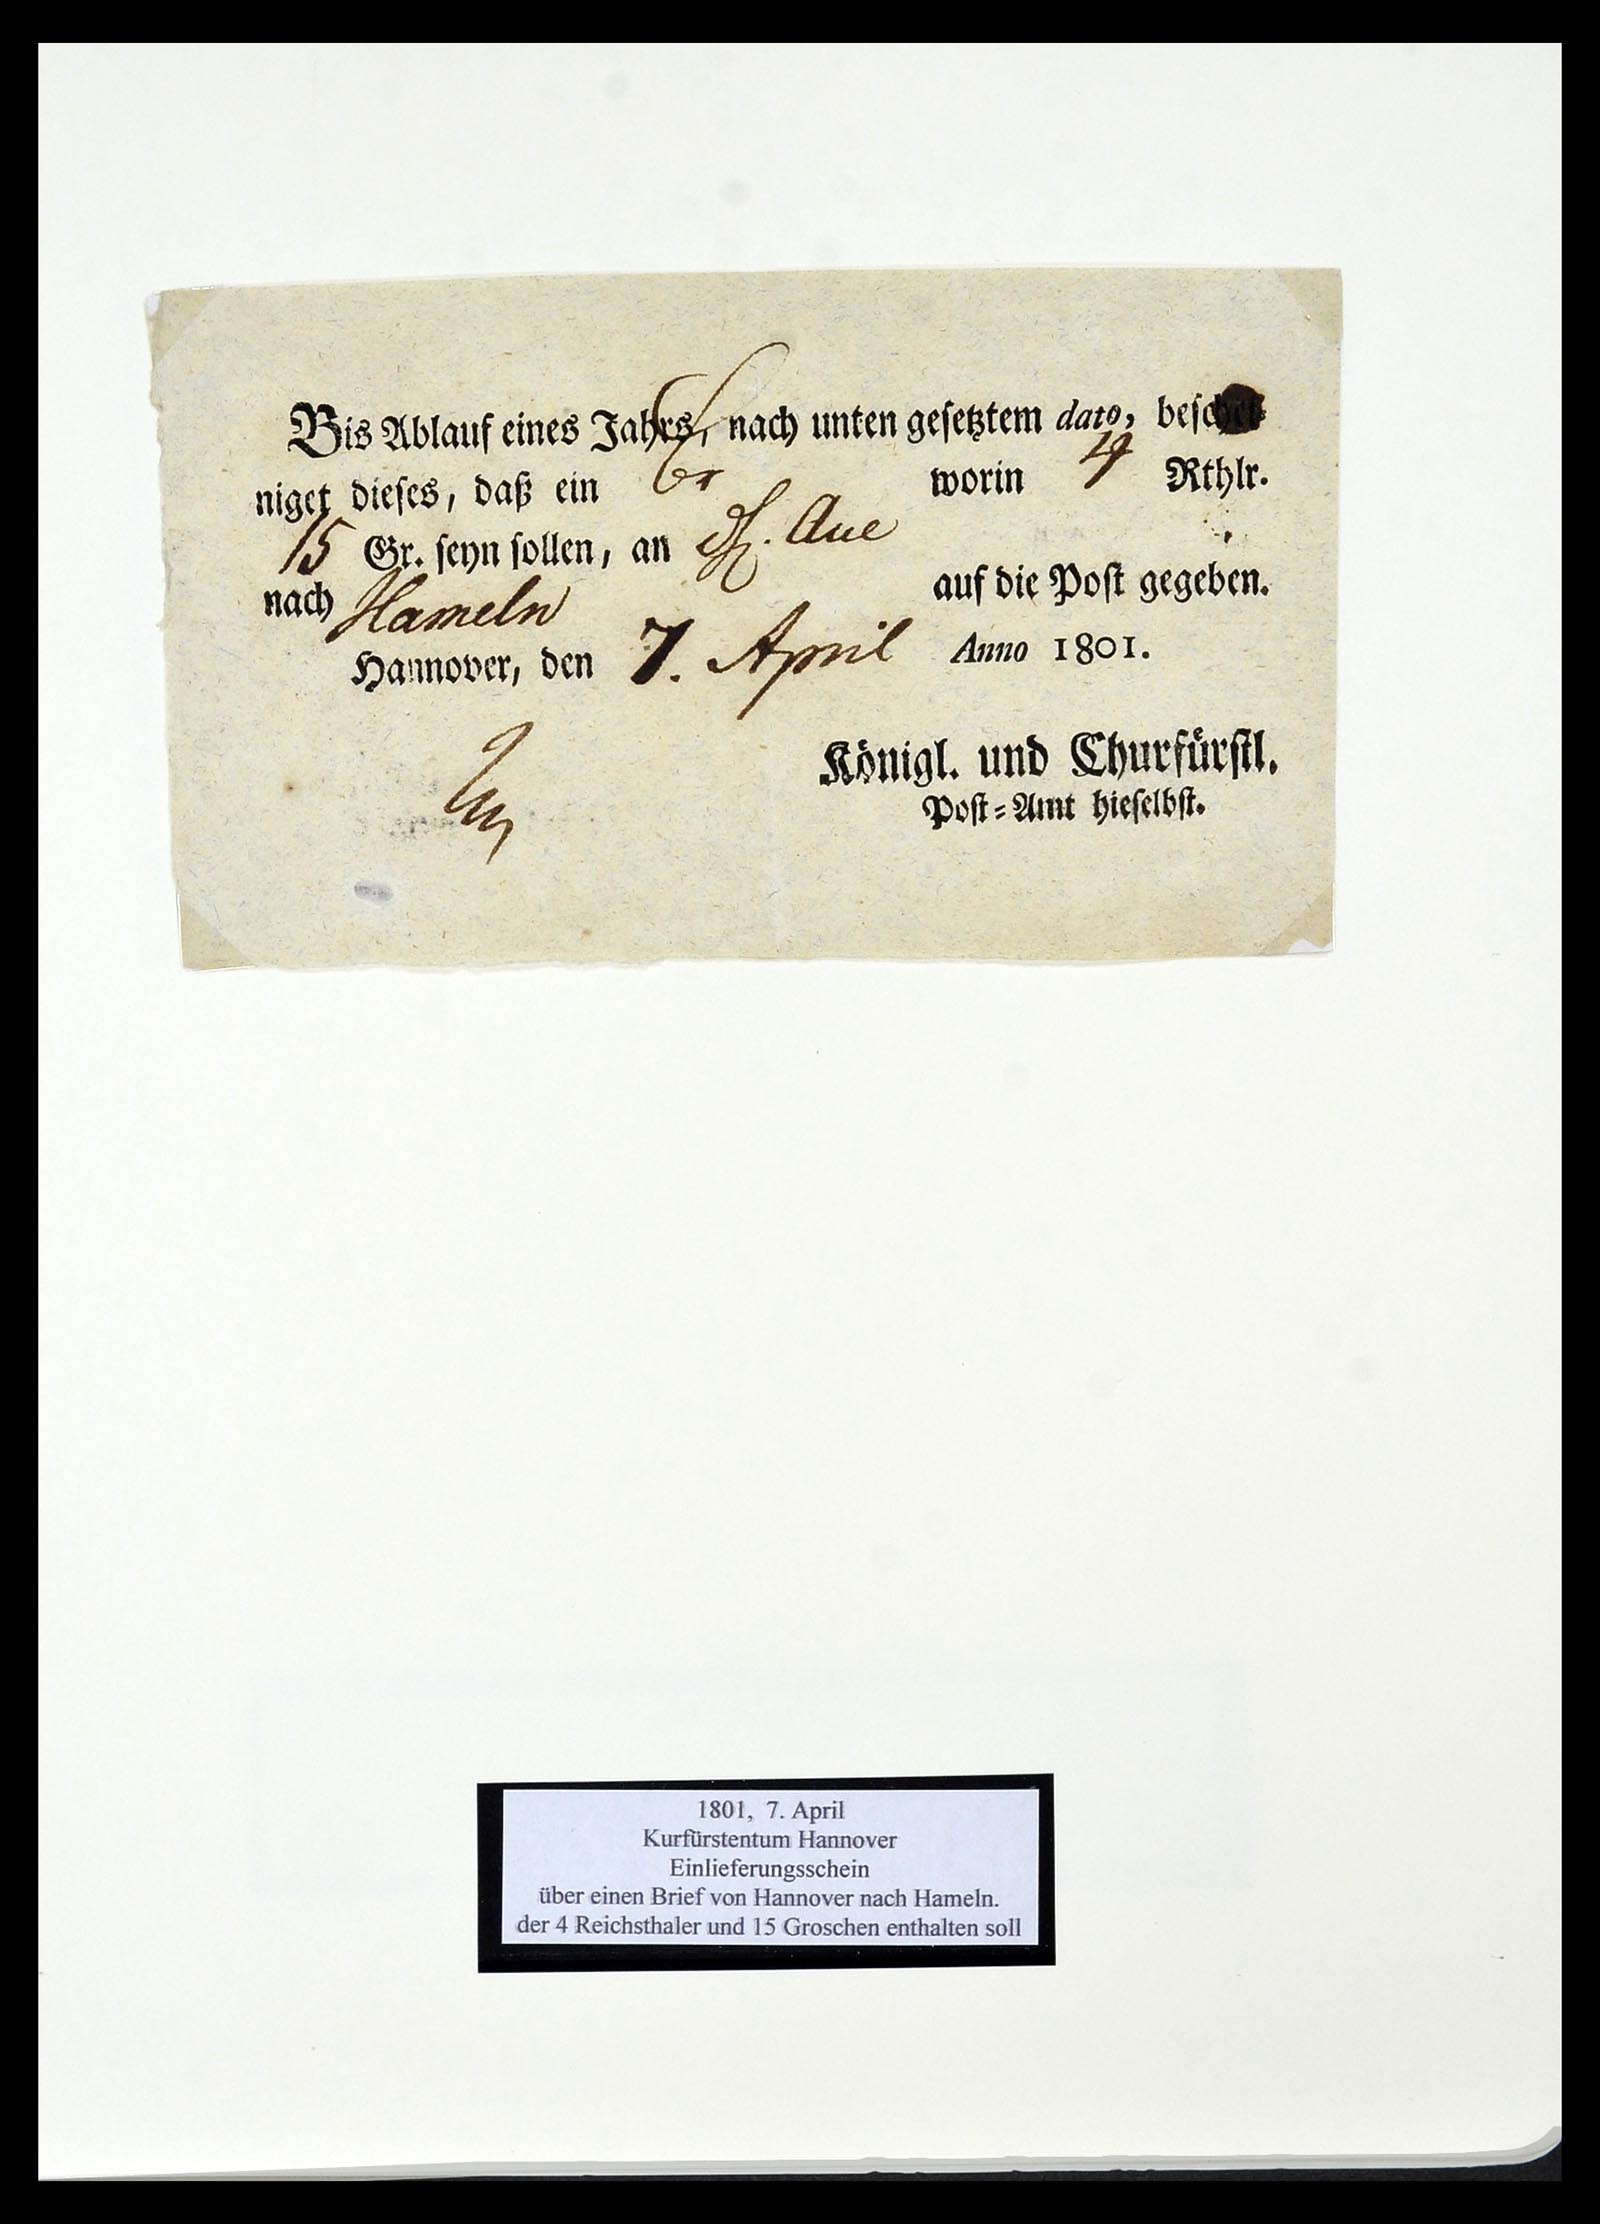 Bis Ablauf eines Jahrs, nach unten gesetztem dato, beschei-
niget dieses, daß ein Br worin 4 Rthlr.
15 Gr. seyn sollen, an H. Aue
nach Hameln auf die Post gegeben.
Hannover, den 7. April Anno 1801.
Königl. und Churfürstl.
Post-Amt hieselbst.
1801, 7. April
Kurfürstentum Hannover
Einlieferungsschein
über einen Brief von Hannover nach Hameln.
der 4 Reichsthaler und 15 Groschen enthalten soll